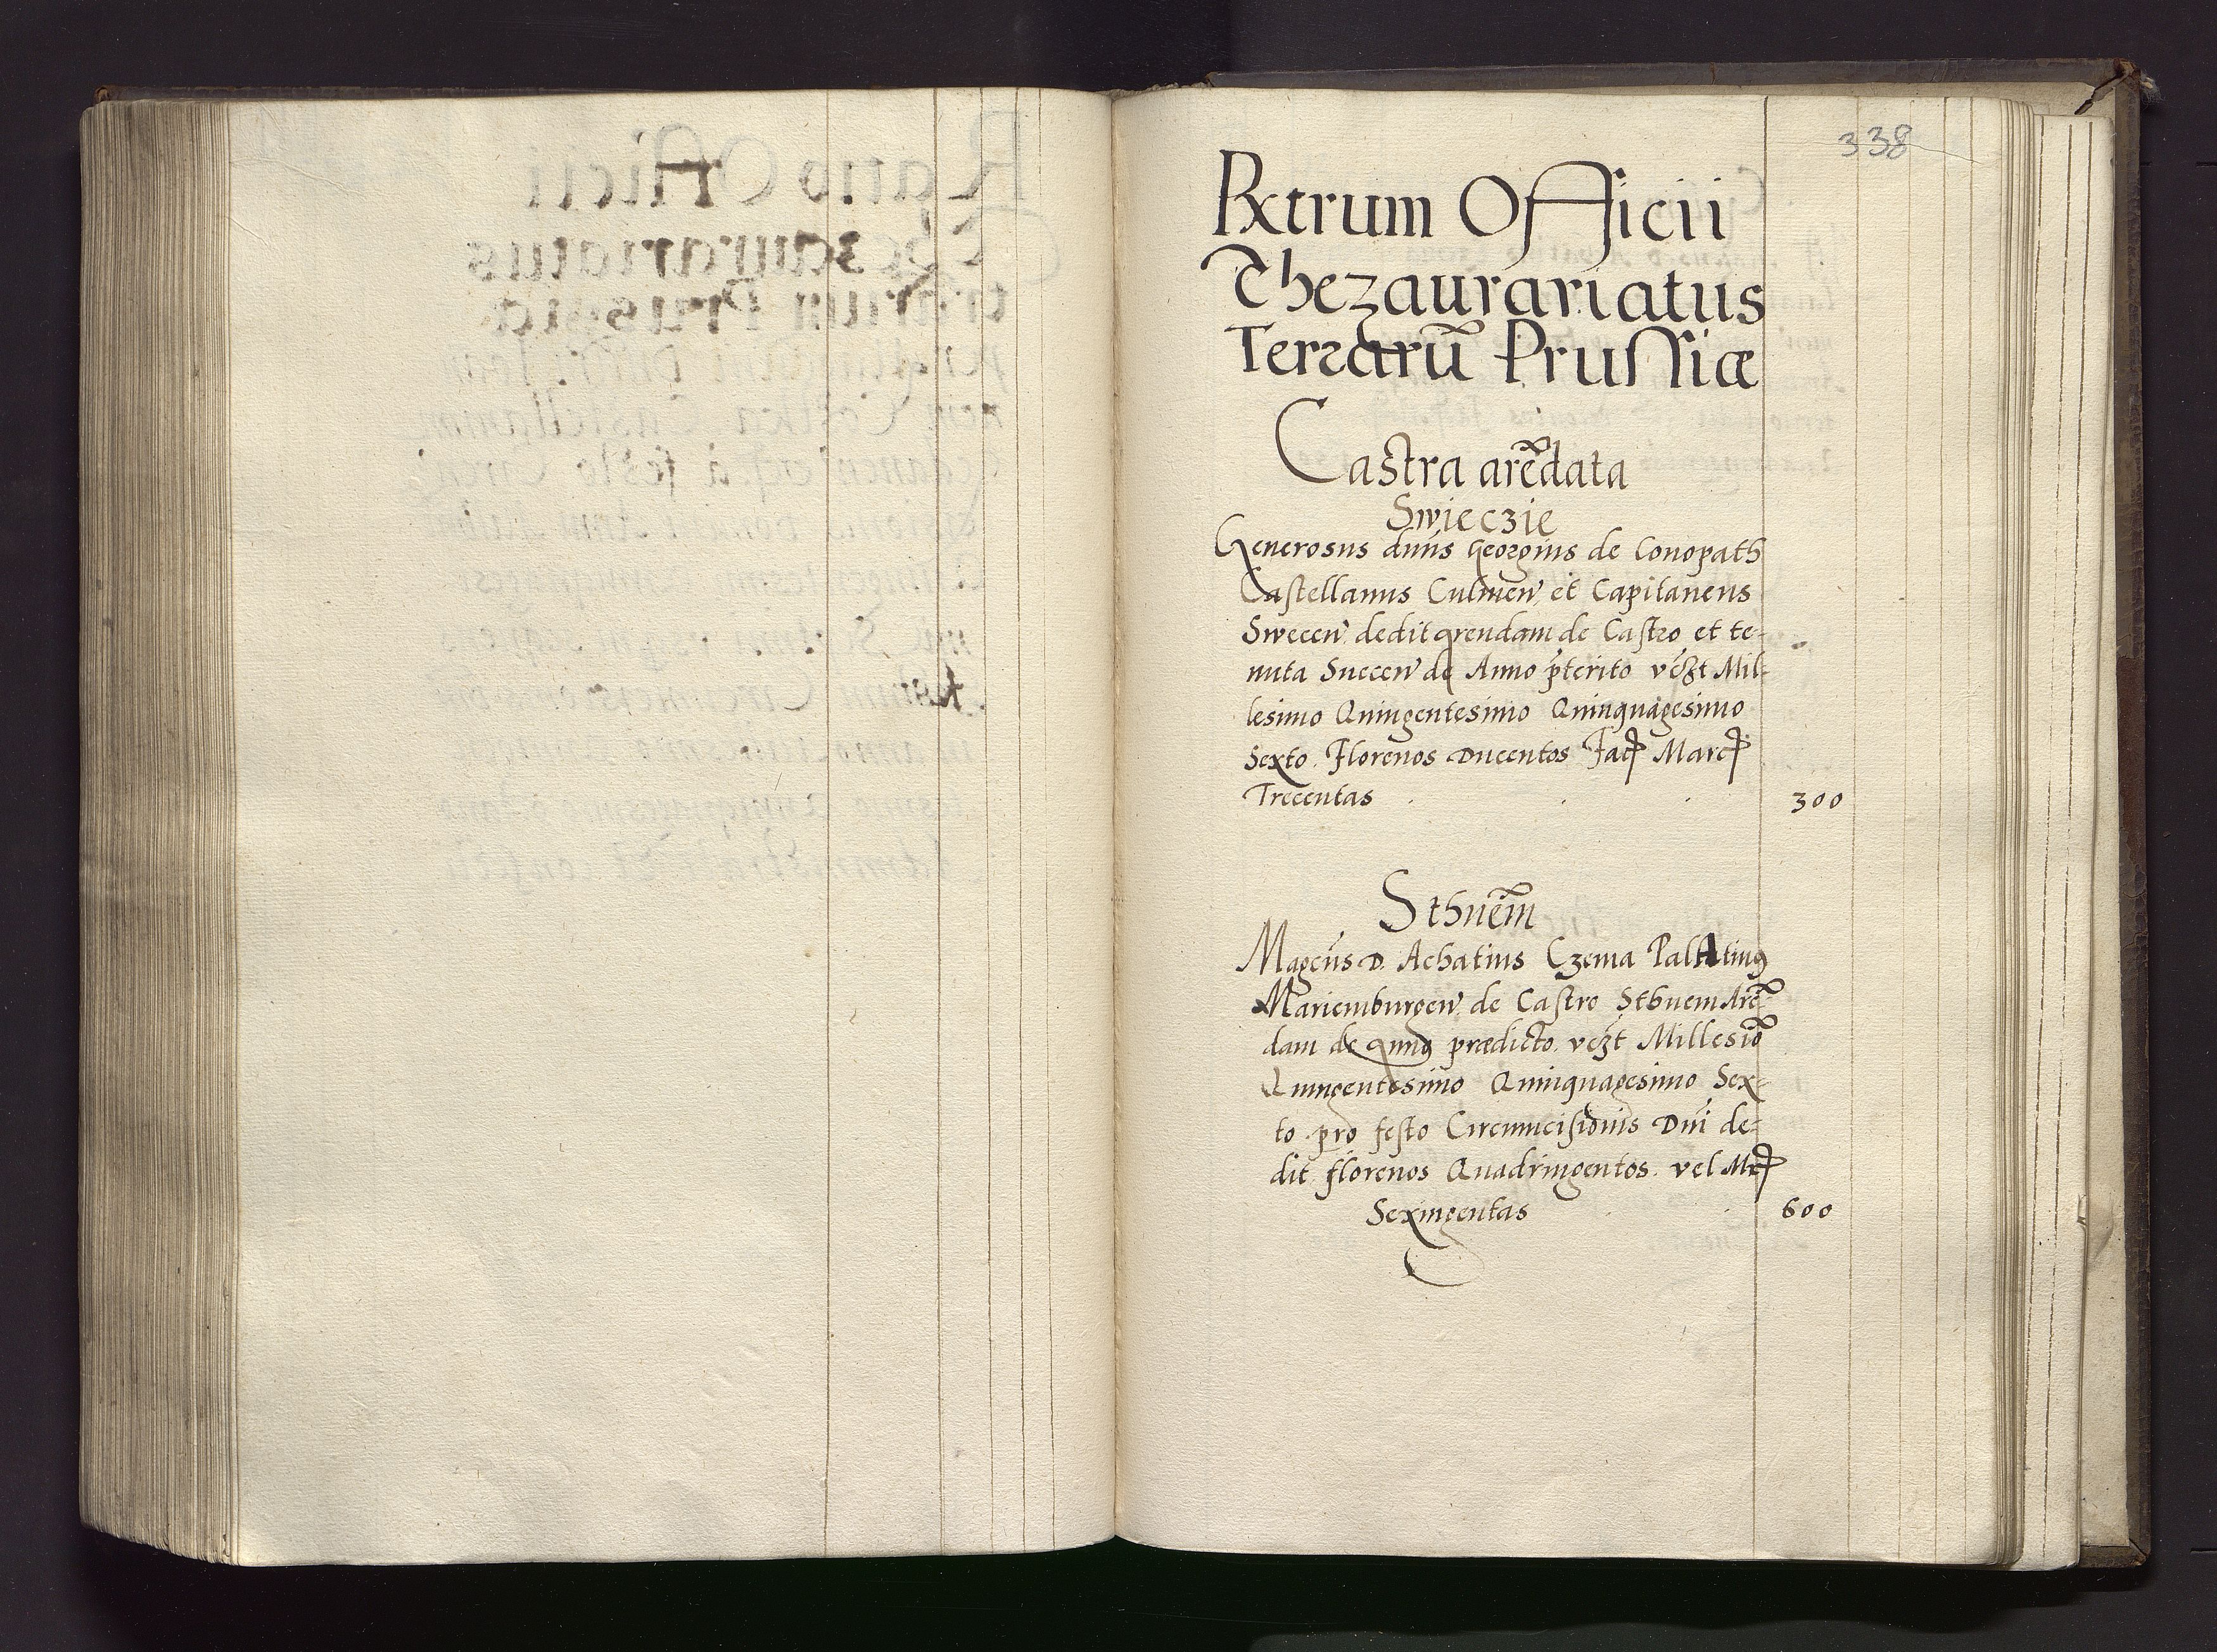 338
Rxtrum Officii
Thezaurariatus
Terrarũ Prussiæ
Castra arẽdata
Swieczie
Generosus dnús Georgius de Conopath
Castellanus Culmen̄ et Capitaneus
Swecen̄ dedit arendam de Castro et te-
nuta Suecen̄ de Anno p̃terito vézt Mil-
lesimo Quingentesimo Quinquagesimo
Sexto Florenos Ducentos Facꝭ Marcꝭ
Trecentas . . . 300
Sthuẽm
Magcús D. Achatius Czema Palatinꝰ
Mariemburgen̄ de Castro Sthuem Arẽ-
dam de Anno prædicto vézt Millesiõ
Quingentesimo Quinquagesimo Sex-
to pro festo Circumcisionis Dni de-
dit florenos Quadringentos vel Mrꝭ
Sexingentas . . 600